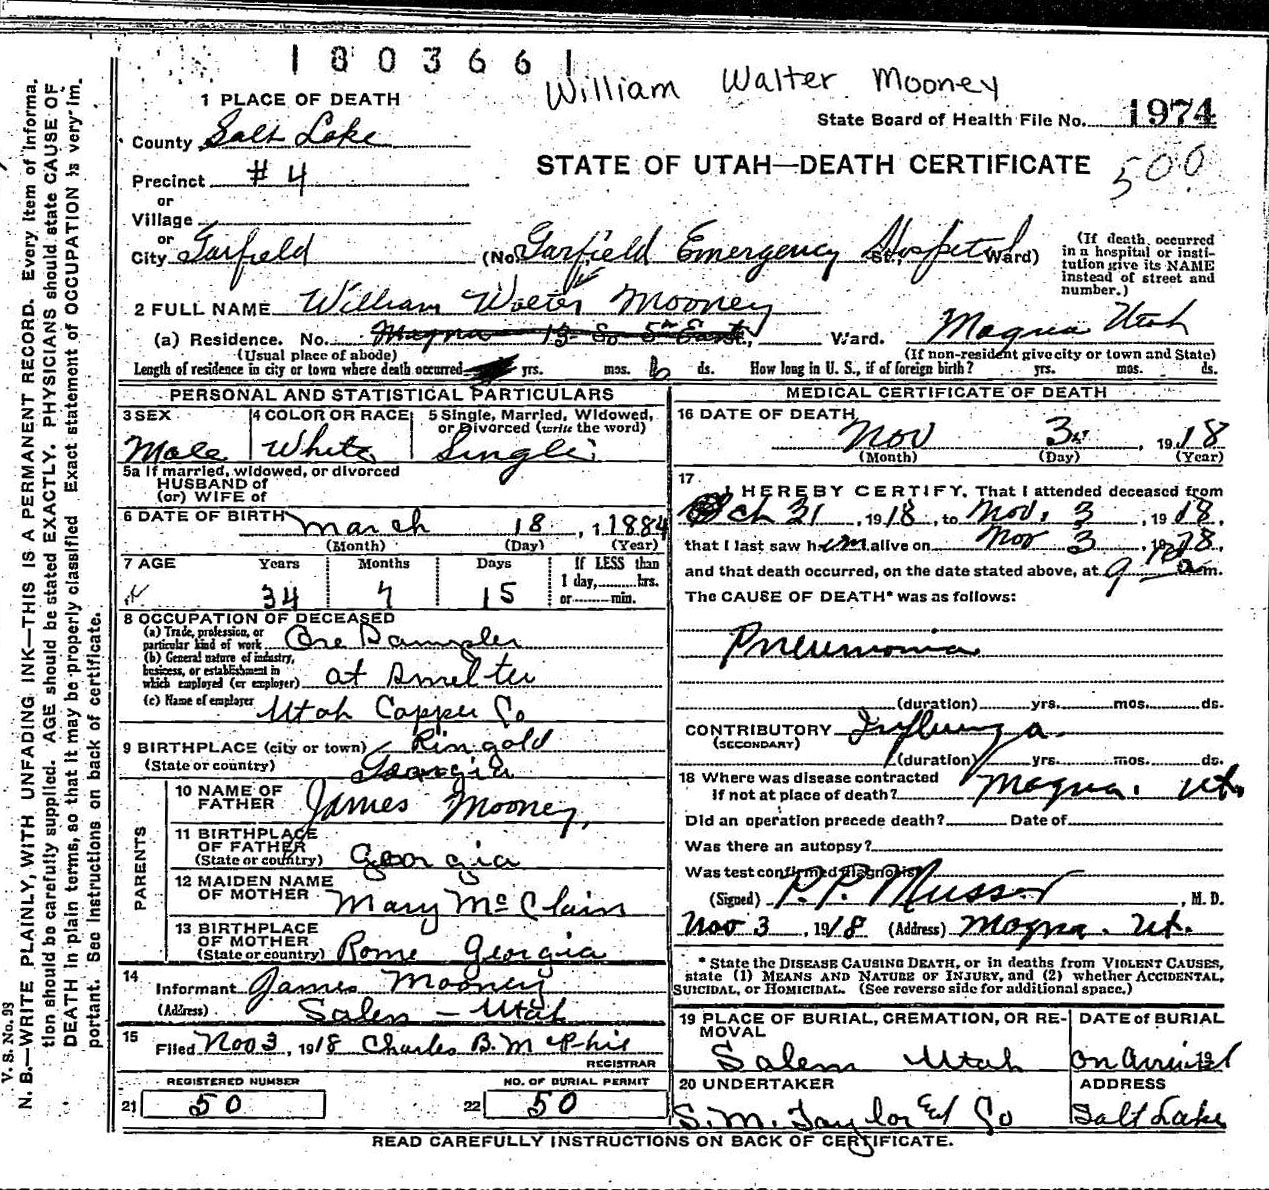 1803661
William Walter Mooney
1 PLACE OF DEATH
State Board of Health File No. 1974
County Salt Lake
STATE OF UTAH—DEATH CERTIFICATE
500
Precinct #4
or
Village
or
City Garfield (No. Garfield Emergency Hospital St., Ward)
(If death occurred in a hospital or insti-
tution give its NAME
instead of street and
number.)
2 FULL NAME William Walter Mooney
(a) Residence. No. Magna 13 So 5th East, Ward. Magna Utah
(Usual place of abode) (If non-resident give city or town and State)
Length of residence in city or town where death occurred yrs. mos. 6 ds. How long in U. S., if of foreign birth? yrs. mos. ds.
PERSONAL AND STATISTICAL PARTICULARS
3 SEX Male
4 COLOR OR RACE White
5 Single, Married, Widowed,
or Divorced (write the word)
Single
5a If married, widowed, or divorced
HUSBAND of
(or) WIFE of
6 DATE OF BIRTH March 18, 1884
(Month) (Day) (Year)
7 AGE Years Months Days If LESS than
1 day, hrs.
or min.
34 7 15
8 OCCUPATION OF DECEASED
(a) Trade, profession, or
particular kind of work Ore Sampler
(b) General nature of industry,
business, or establishment in
which employed (or employer) at Smelter
(c) Name of employer Utah Copper Co
9 BIRTHPLACE (city or town) Ringold
(State or country) Georgia
PARENTS
10 NAME OF
FATHER James Mooney,
11 BIRTHPLACE
OF FATHER
(State or country) Georgia
12 MAIDEN NAME
OF MOTHER Mary McClain
13 BIRTHPLACE
OF MOTHER
(State or country) Rome Georgia
14
Informant James Mooney
(Address) Salem - Utah
15
Filed Nov 3, 1918 Charles B. McPhie
REGISTRAR
REGISTERED NUMBER
21 50
NO. OF BURIAL PERMIT
22 50
MEDICAL CERTIFICATE OF DEATH
16 DATE OF DEATH
Nov 3, 1918
(Month) (Day) (Year)
17
I HEREBY CERTIFY, That I attended deceased from
Oct 31, 1918, to Nov. 3, 1918,
that I last saw him alive on Nov 3, 1918,
and that death occurred, on the date stated above, at 9 a m.
The CAUSE OF DEATH* was as follows:
Pneumonia
(duration) yrs. mos. ds.
CONTRIBUTORY Influenza.
(SECONDARY)
(duration) yrs. mos. ds.
18 Where was disease contracted
if not at place of death? Magna. Ut.
Did an operation precede death? Date of
Was there an autopsy?
Was test confirmed diagnosis?
(Signed) P. P. Musser, M. D.
Nov 3, 1918 (Address) Magna. Ut.
* State the DISEASE CAUSING DEATH, or in deaths from VIOLENT CAUSES,
state (1) MEANS AND NATURE OF INJURY, and (2) whether ACCIDENTAL,
SUICIDAL, or HOMICIDAL. (See reverse side for additional space.)
19 PLACE OF BURIAL, CREMATION, OR RE-
MOVAL
Salem Utah
DATE of BURIAL
on arrival 19
20 UNDERTAKER
S. M. Taylor & Co
ADDRESS
Salt Lake
READ CAREFULLY INSTRUCTIONS ON BACK OF CERTIFICATE.
V. S. No. 93
N. B.—WRITE PLAINLY, WITH UNFADING INK—THIS IS A PERMANENT RECORD. Every item of informa-
tion should be carefully supplied. AGE should be stated EXACTLY. PHYSICIANS should state CAUSE OF
DEATH in plain terms, so that it may be properly classified. Exact statement of OCCUPATION is very im-
portant. See instructions on back of certificate.